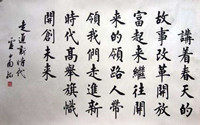 講着春天的
故事改革開放
富起來繼往開
來的領路人帶
領我們走進新
時代高舉旗幟
開創未來
走進新時代